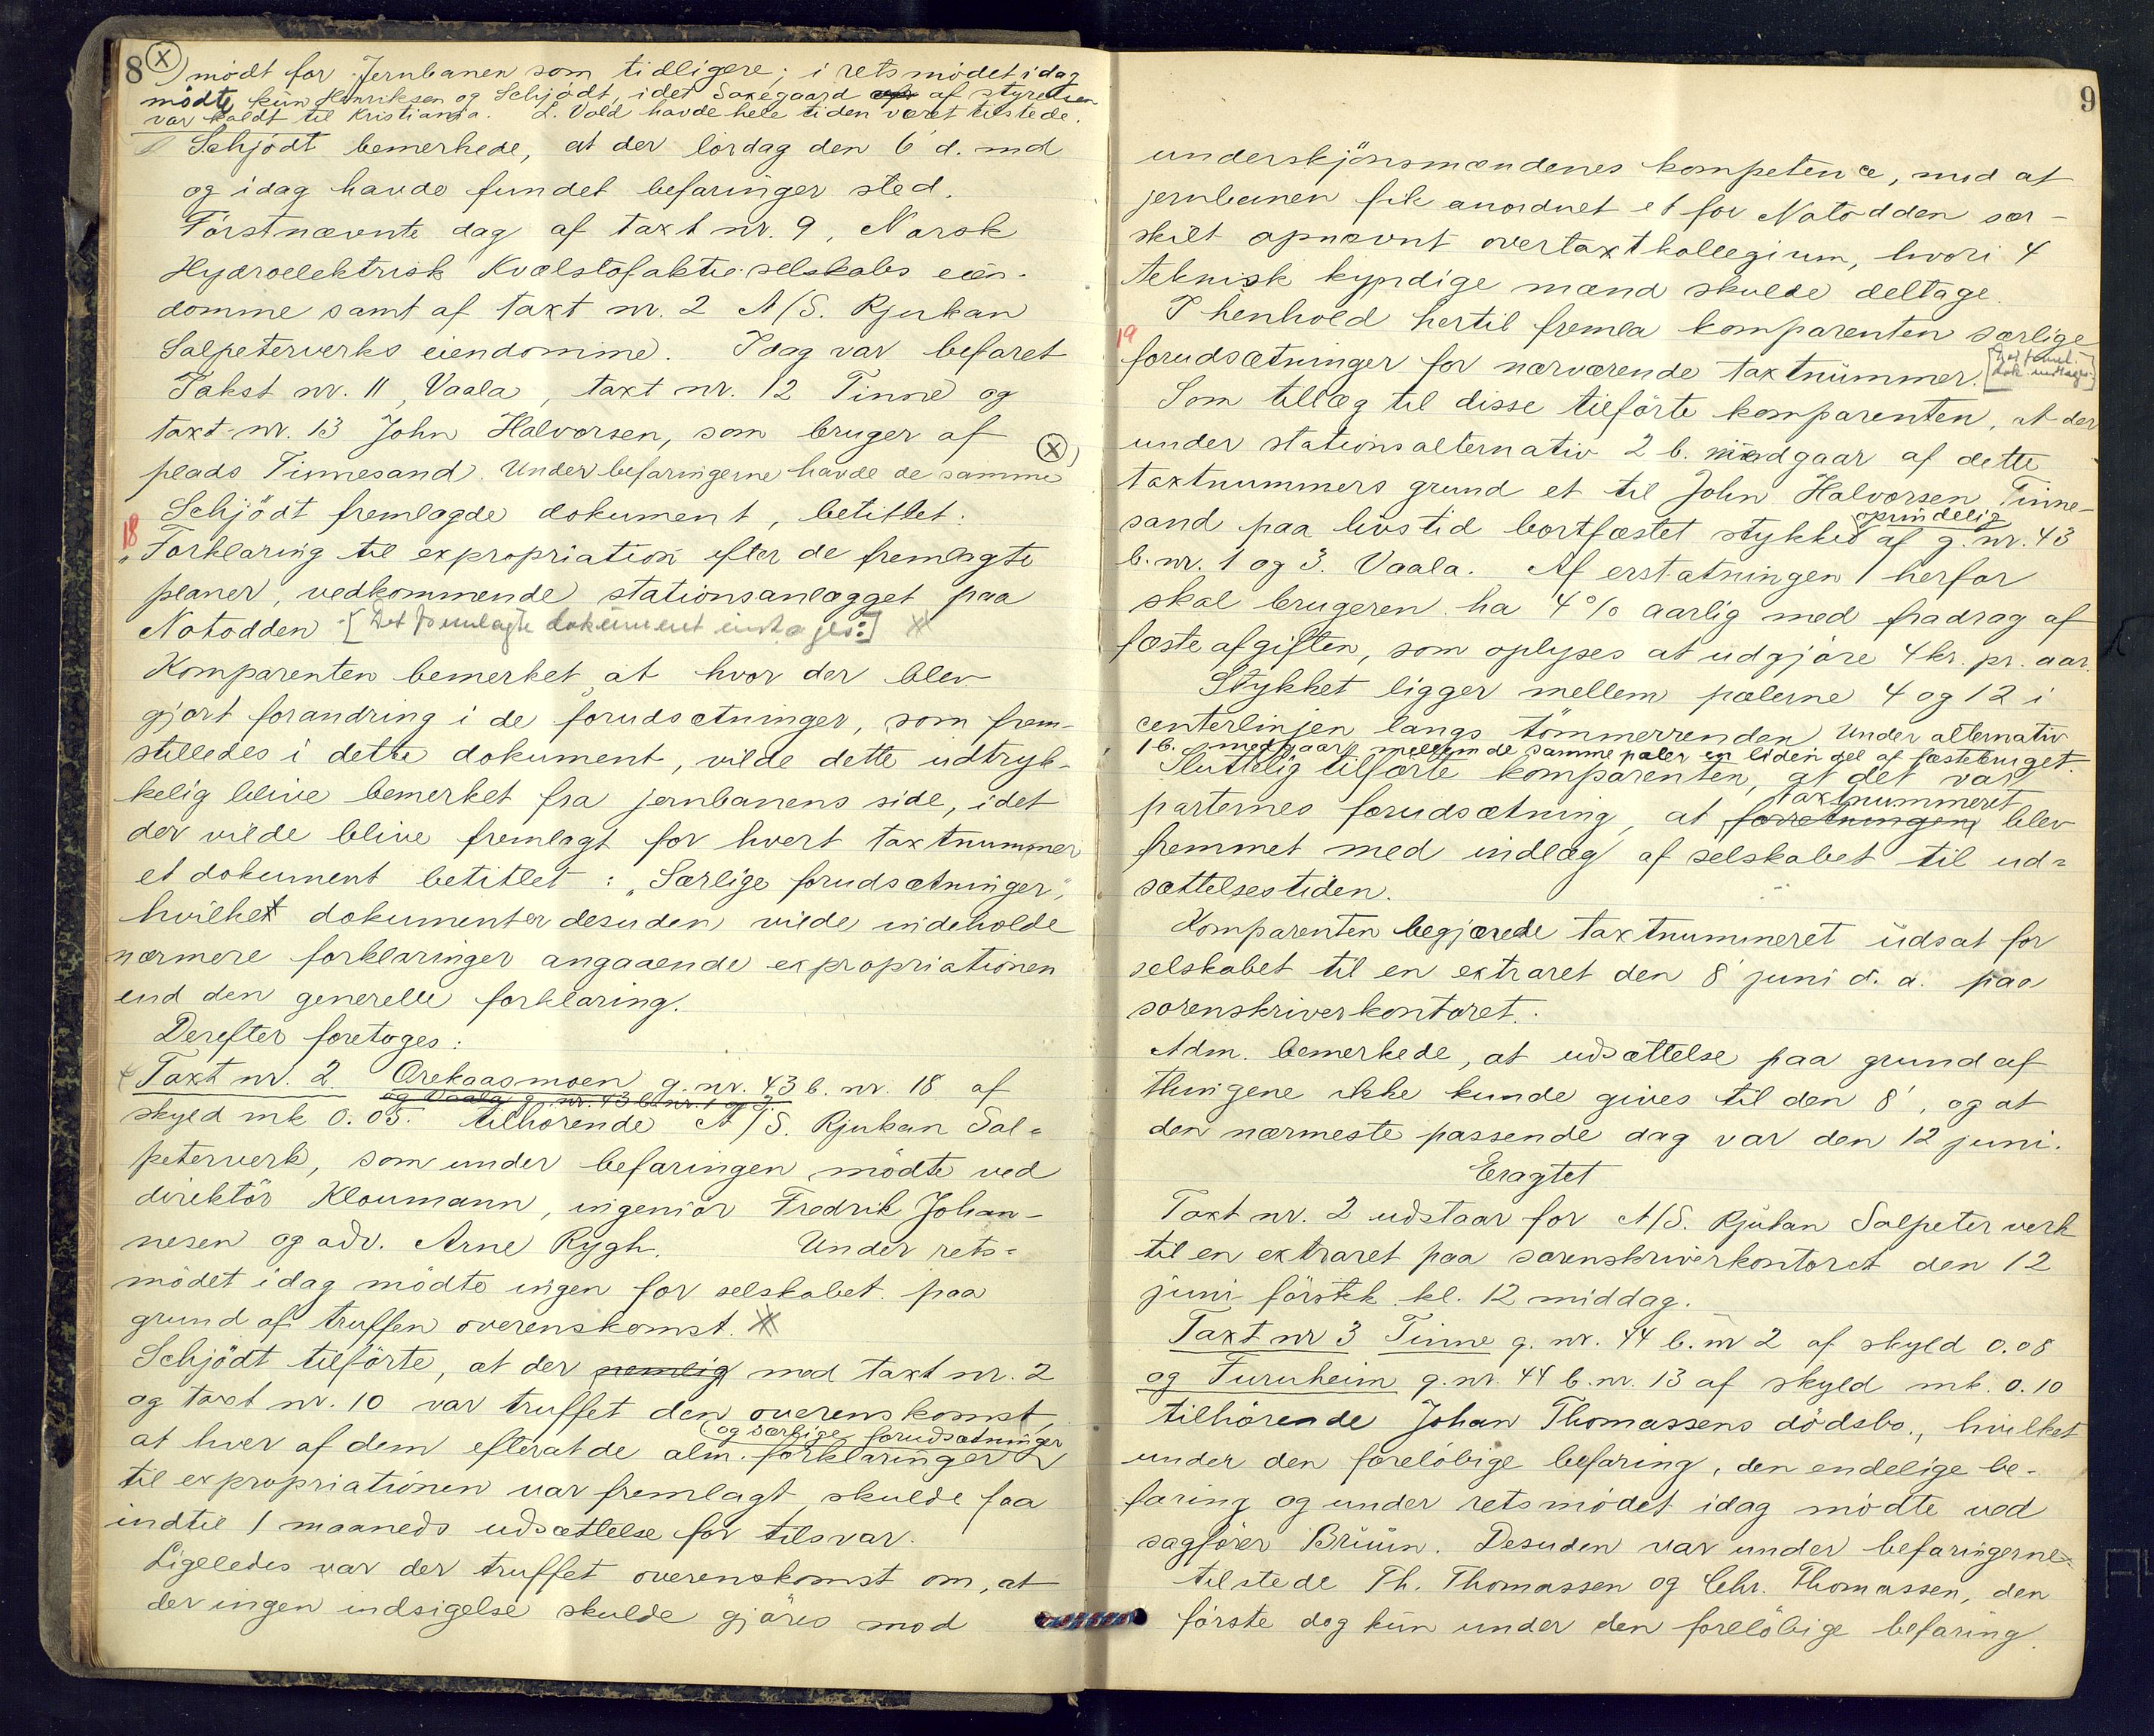 8
(x) mödt for Jernbanen som tidligere; i retsmödet idag
mödte kun Henriksen og Schjödt, idet Saxegaard af styrelsen
var kaldt til Kristiania. L. Vold havde hele tiden været tilstede.
Schjödt bemerkede, at der lördag den 6' d. md
og idag havde fundet befaringer sted.
Förstnævnte dag af taxt nr. 9, Norsk
Hydroelektrisk Kvælstofaktieselskabs eien-
domme samt af taxt nr. 2 A/S. Rjukan
Salpeterverks eiendomme. Idag var befaret
Takst nr. 11, Vaala, taxt nr. 12 Tinne og
taxt nr. 13 John Halvorsen, som bruger af
plads Tinnesand. Under befaringerne havde de samme (x)
Schjödt fremlagde dokument, betitlet:
18
"Forklaring til expropriation efter de fremlagte
planer, vedkommende stationsanlægget paa
Notodden [Det fremlagte dokument indtages:]
Komparenten bemerket, at hvor der blev
gjort forandring i de forudsætninger, som frem-
stilledes i dette dokument, vilde dette udtryk-
kelig blive bemerket fra jernbanens side, idet
der vilde blive fremlagt for hvert taxtnummer
et dokument betitlet: "Særlige forudsætninger",
hvilket dokumenter desuden vilde indeholde
nærmere forklaringer angaaende expropriationen
end den generelle forklaring.
Derefter foretoges:
Taxt nr. 2 Orekaasmoen g. nr. 43 b. nr. 18 af
og Vaala g. nr. 43 b. nr. 1 og 3.
skyld mk 0.05. tilhörende A/S. Rjukan Sal-
peterverk, som under befaringen mödte ved
direktör Kloumann, ingeniör Fredrik Johan-
nesen og adv. Arne Rygh. Under rets-
mödet idag mödte ingen for selskabet paa
grund af truffen overenskomst.
Schjödt tilförte, at der nemlig med taxt nr. 2
og taxt nr. 10 var truffet den overenskomst,
og særlige forudsætninger
at hver af dem efterat de alm. forklaringer
til expropriationen var fremlagt, skulde faa
indtil 1 maaneds udsættelse for tilsvar.
Ligeledes var der truffet overenskomst om, at
der ingen indsigelse skulde gjöres mod
9
underskjönsmændenes kompetence, med at
jernbanen fik anordnet et for Notodden sær-
skilt opnævnt overtaxtkollegium, hvori 4
teknisk kyndige mænd skulde deltage.
I henhold hertil fremla komparenten særlige
19
forudsætninger for nærværende taxtnummer. [Det freml. dok indtages]
Som tillæg til disse tilförte komparenten, at der
under stationsalternativ 2 b. medgaar af dette
taxtnummers grund et til John Halvorsen Tinne-
oprindelig
sand paa livstid bortfæstet stykke af g. nr. 43
b. nr. 1 og 3. Vaala. Af erstatningen herfor
skal brugeren ha 4% aarlig med fradrag af
fæsteafgiften, som oplyses at udgjöre 4 kr. pr. aar.
Stykket ligger mellem pælerne 4 og 12 i
centerlinjen langs tömmerrenden. Under alternativ
1 b. medgaar mellem de samme pæler en liden del af fæstebruget.
Sluttelig tilförte komparenten, at det var
taxtnummeret
parternes forudsætning, at forretningen blev
fremmet med indlæg af selskabet til ud-
sættelsestiden.
Komparenten begjærede taxtnummeret udsat for
selskabet til en extraret den 8' juni d. a. paa
sorenskriverkontoret.
Adm. bemerkede, at udsættelse paa grund af
thingene ikke kunde gives til den 8', og at
den nærmeste passende dag var den 12 juni.
Eragtet
Taxt nr. 2 udstaar for A/S. Rjukan Salpeterverk
til en extraret paa sorenskriverkontoret den 12
juni förstk. kl. 12 middag.
Taxt nr 3 Tinne g. nr. 44 b. nr 2 af skyld 0.08
og Furuheim g. nr. 44 b. nr. 13 af skyld mk. 0.10
tilhörende Johan Thomassens dödsbo., hvilket
under den forelöbige befaring, den endelige be-
faring og under retsmödet idag mödte ved
sagförer Bruun. Desuden var under befaringerne
tilstede Th. Thomassen og Chr. Thomassen, den
förste dog kun under den forelöbige befaring.